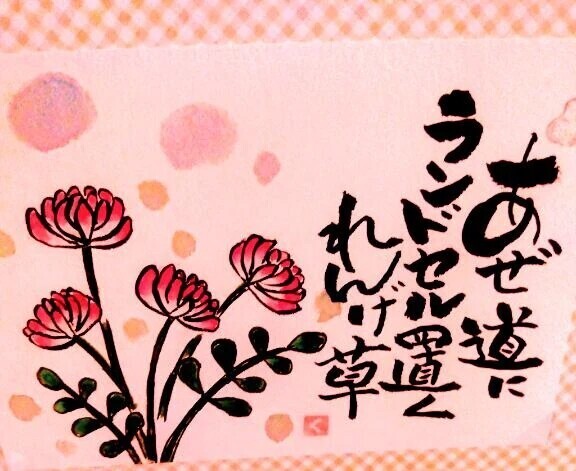 あぜ道に
ランドセル置く
れんげ草